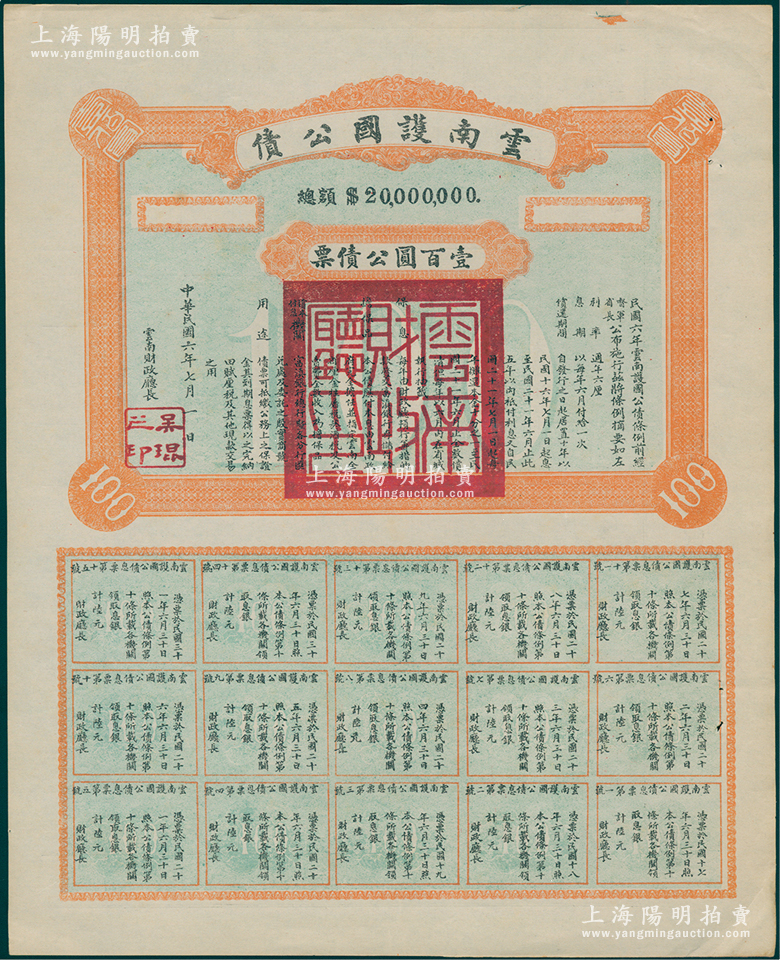 上海陽明拍賣
www.yangmingauction.com
雲南護國公債
總額 $20,000,000.
壹百圓公債票
民國六年雲南護國公債條例前經
督軍
省長
公布施行茲將條例摘要如左
利率 週年六厘
息期 以每年六月付給一次
償還期間 自發行之日起居置十年以
民國十六年七月一日起息
至民國二十一年六月止此
五年以內祗付利息又自民
國二十一年七月一日起
用途 債票可抵繳公務上之保證
金其到期息票得以之完納
田賦厘稅及其他現款交易
之用
中華民國六年七月一日
雲南財政廳長
吳琨之印
雲南財政廳印
100
100
雲南護國公債息票第十一號
憑票於民國二十
七年六月三十日
照本公債條例第
十條所載各機關
領取息銀
計陸元
財政廳長
雲南護國公債息票第十二號
憑票於民國二十
八年六月三十日
照本公債條例第
十條所載各機關
領取息銀
計陸元
財政廳長
雲南護國公債息票第十三號
憑票於民國二十
九年六月三十日
照本公債條例第
十條所載各機關
領取息銀
計陸元
財政廳長
雲南護國公債息票第十四號
憑票於民國三十
年六月三十日照
本公債條例第十
條所載各機關領
取息銀
計陸元
財政廳長
雲南護國公債息票第十五號
憑票於民國三十
一年六月三十日
照本公債條例第
十條所載各機關
領取息銀
計陸元
財政廳長
雲南護國公債息票第六號
憑票於民國二十
二年六月三十日
照本公債條例第
十條所載各機關
領取息銀
計陸元
財政廳長
雲南護國公債息票第七號
憑票於民國二十
三年六月三十日
照本公債條例第
十條所載各機關
領取息銀
計陸元
財政廳長
雲南護國公債息票第八號
憑票於民國二十
四年六月三十日
照本公債條例第
十條所載各機關
領取息銀
計陸元
財政廳長
雲南護國公債息票第九號
憑票於民國二十
五年六月三十日
照本公債條例第
十條所載各機關
領取息銀
計陸元
財政廳長
雲南護國公債息票第十號
憑票於民國二十
六年六月三十日
照本公債條例第
十條所載各機關
領取息銀
計陸元
財政廳長
雲南護國公債息票第一號
憑票於民國十七
年六月三十日照
本公債條例第十
條所載各機關領
取息銀
計陸元
財政廳長
雲南護國公債息票第二號
憑票於民國十八
年六月三十日照
本公債條例第十
條所載各機關領
取息銀
計陸元
財政廳長
雲南護國公債息票第三號
憑票於民國十九
年六月三十日照
本公債條例第十
條所載各機關領
取息銀
計陸元
財政廳長
雲南護國公債息票第四號
憑票於民國二十
年六月三十日照
本公債條例第十
條所載各機關領
取息銀
計陸元
財政廳長
雲南護國公債息票第五號
憑票於民國二十
一年六月三十日
照本公債條例第
十條所載各機關
領取息銀
計陸元
財政廳長
上海陽明拍賣
www.yangmingauction.com
上海陽明拍賣
www.yangmingauction.com